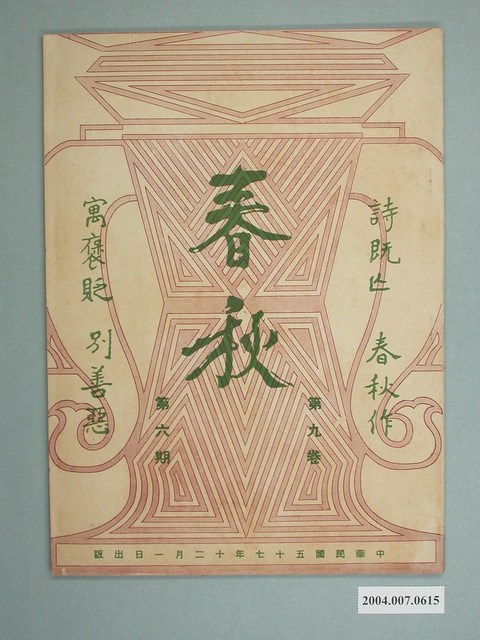 春秋
詩既亡 春秋作
寓褒貶 別善惡
第九卷
第六期
中華民國五十七年十二月一日出版
2004.007.0615